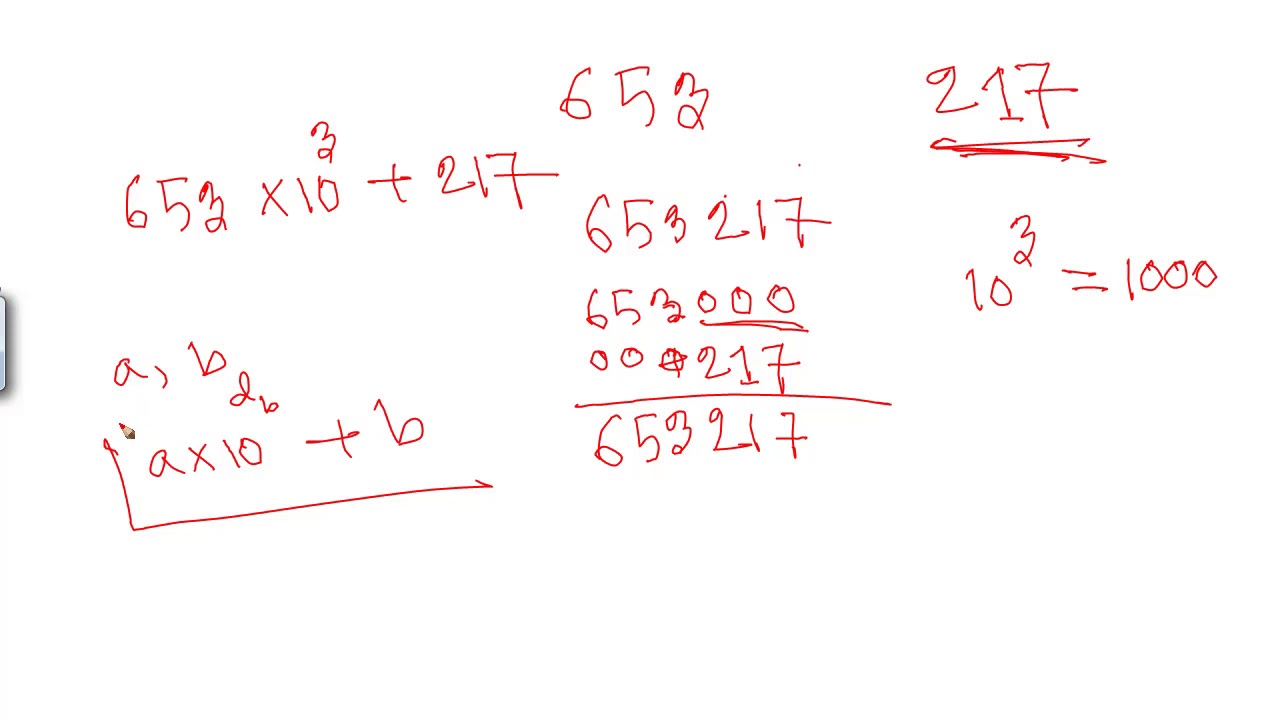 653 217
653 × 10³ + 217
653217
10³ = 1000
653000
000217
653217
a, b
a × 10^{d_b} + b